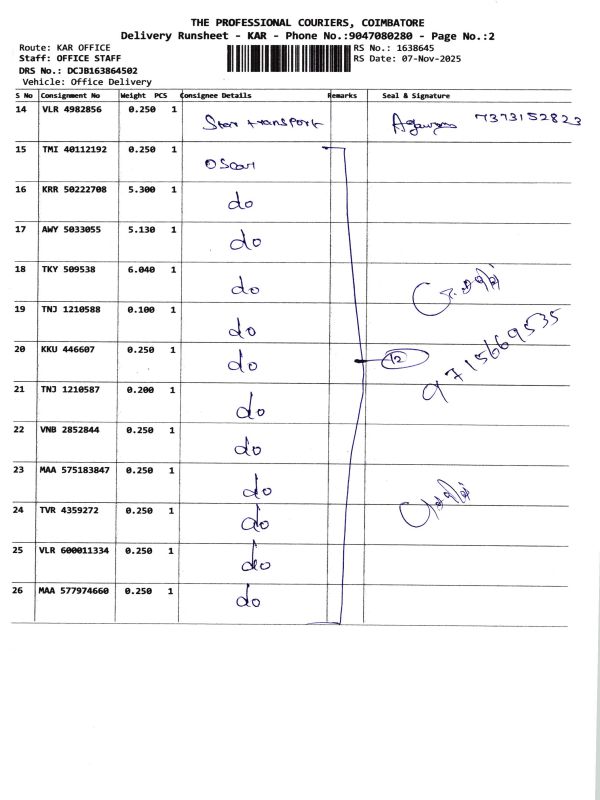 THE PROFESSIONAL COURIERS, COIMBATORE
Delivery Runsheet - KAR - Phone No.:9047080280 - Page No.:2
Route: KAR OFFICE RS No.: 1638645
Staff: OFFICE STAFF RS Date: 07-Nov-2025
DRS No.: DCJB163864502
Vehicle: Office Delivery
S No Consignment No Weight PCS Consignee Details Remarks Seal & Signature
14 VLR 4982856 0.250 1 Star transport 7373152823
15 TMI 40112192 0.250 1 Oscar
16 KRR 50222708 5.300 1 do
17 AWY 5033055 5.130 1 do
18 TKY 509538 6.040 1 do
19 TNJ 1210588 0.100 1 do
20 KKU 446607 0.250 1 do 12 9715669535
21 TNJ 1210587 0.200 1 do
22 VNB 2852844 0.250 1 do
23 MAA 575183847 0.250 1 do
24 TVR 4359272 0.250 1 do
25 VLR 600011334 0.250 1 do
26 MAA 577974660 0.250 1 do